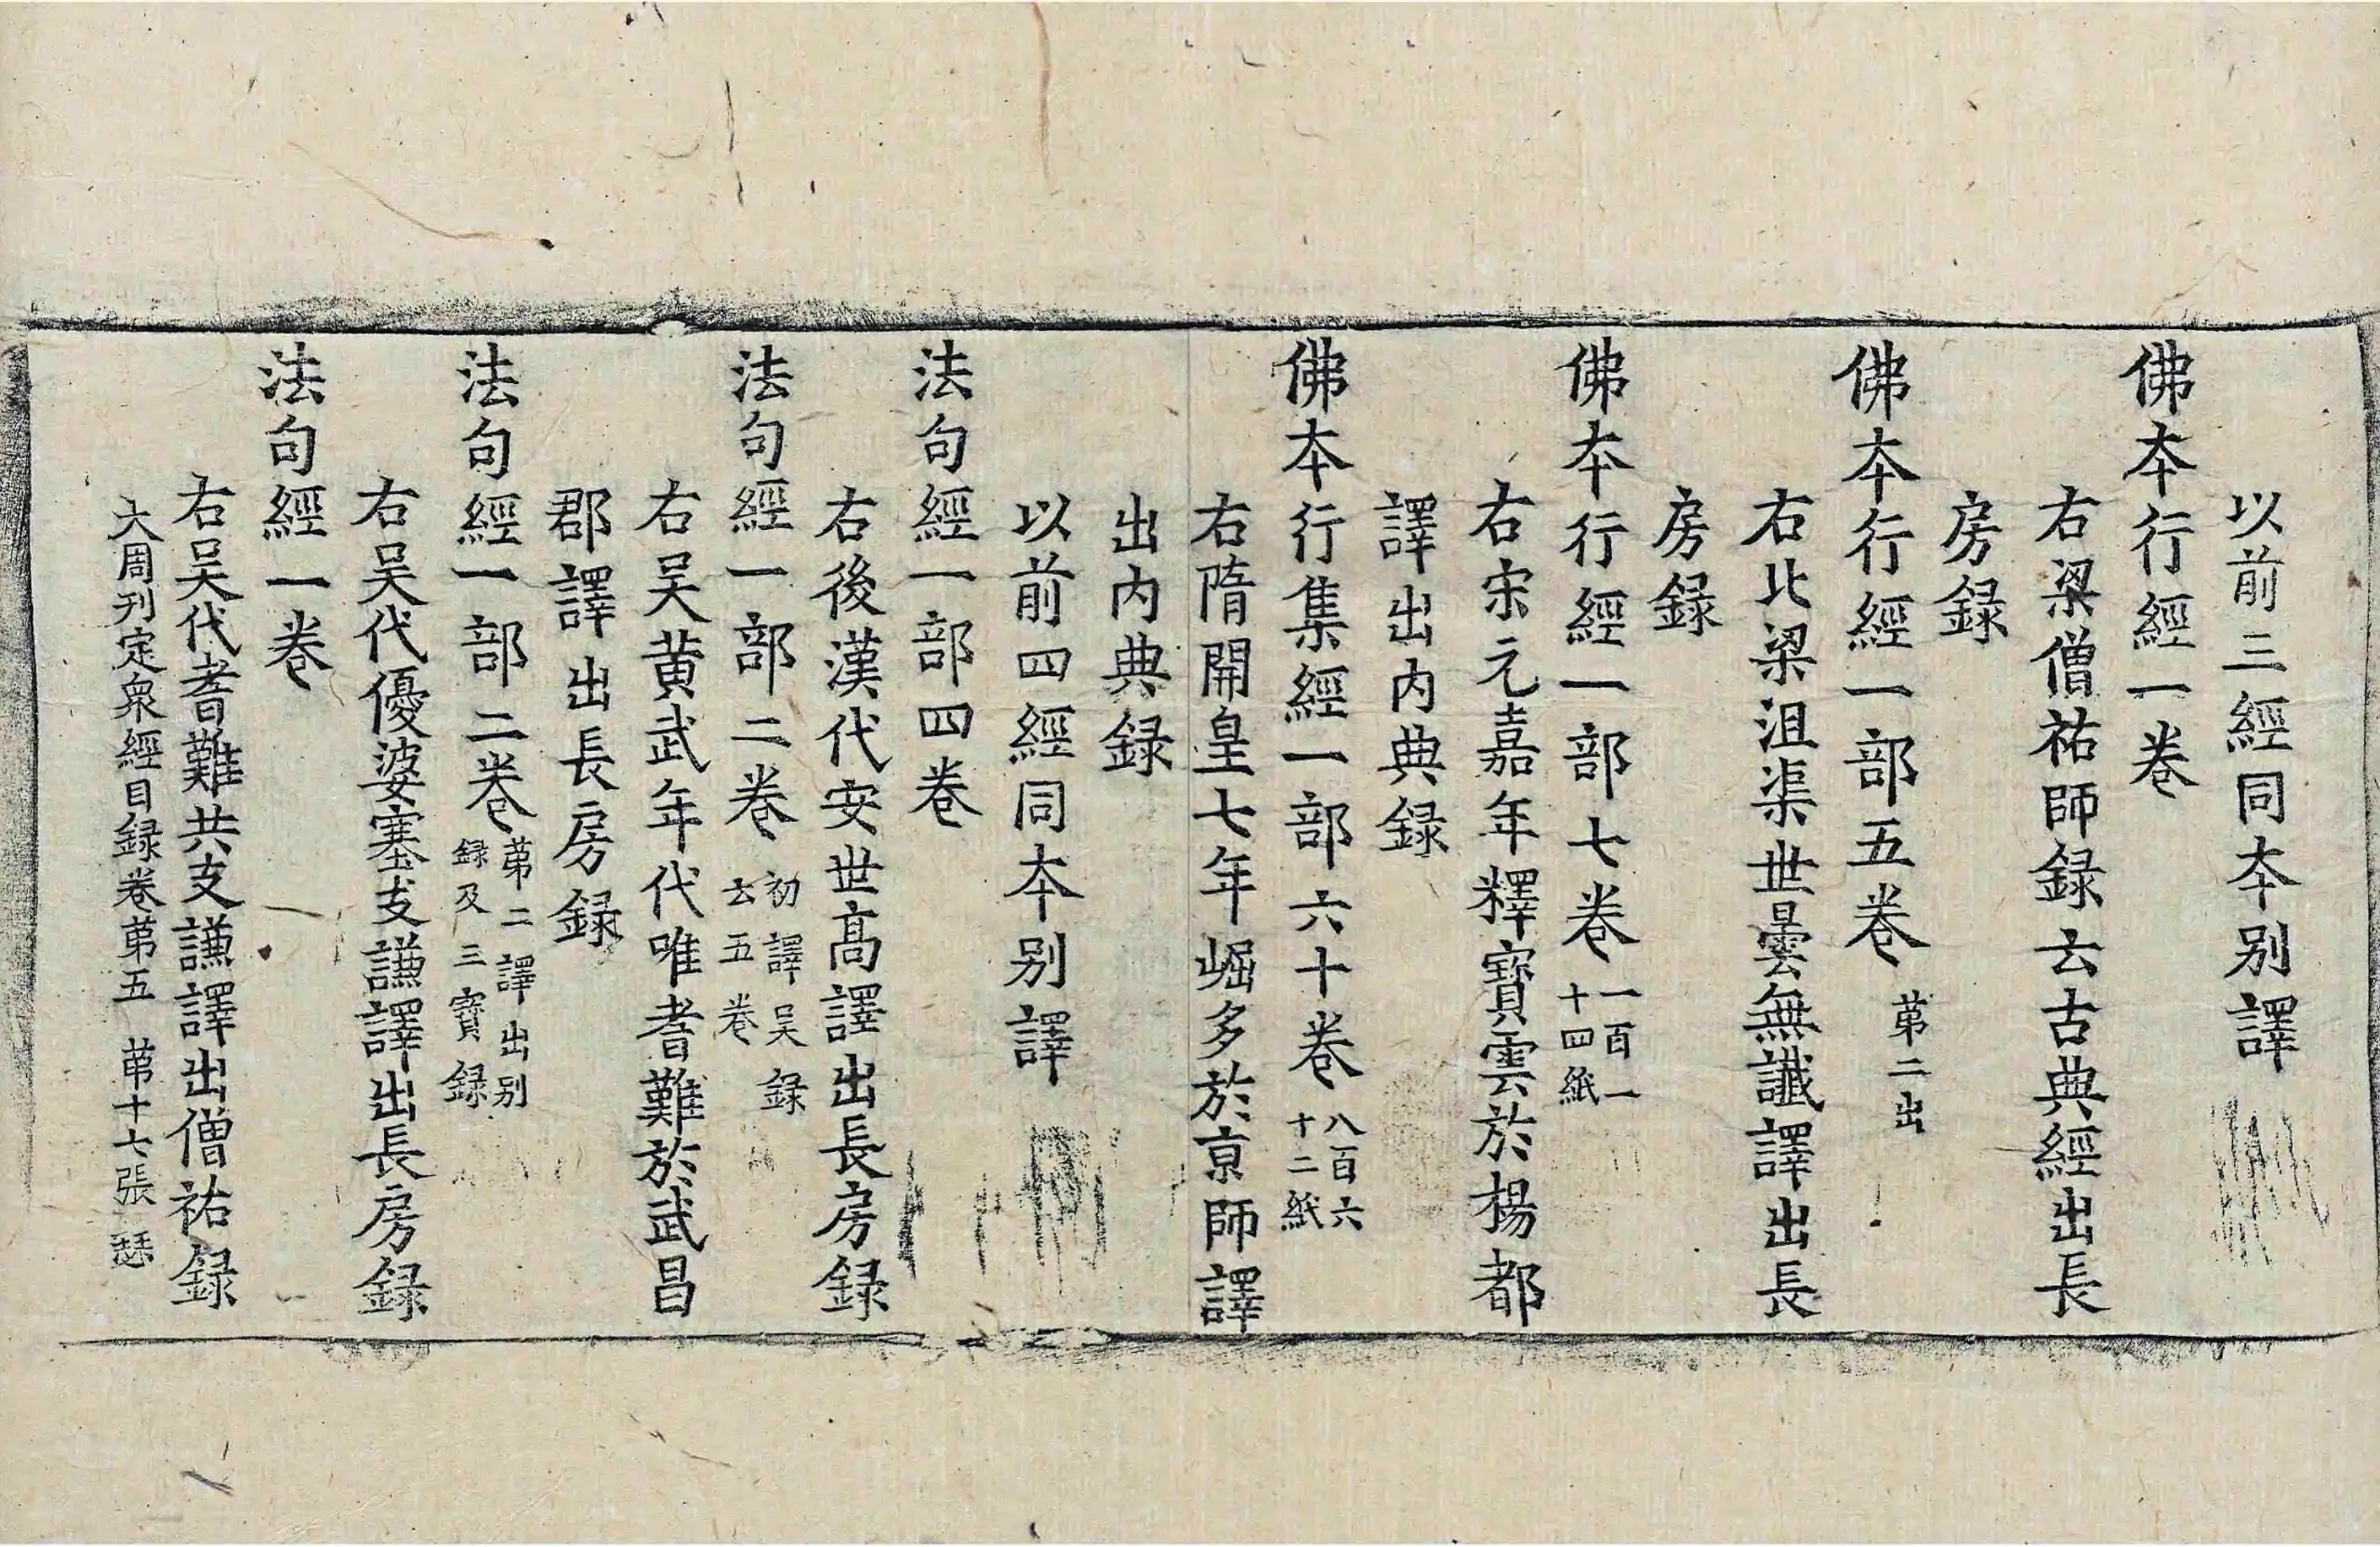 以前三經同夲别譯
佛夲行經一卷
右梁僧祐師録云古典經出長
房録
佛夲行經一部五卷 苐二出
右北梁沮渠世曇無讖譯出長
房録
佛夲行經一部七卷 一百一十四紙
右宋元嘉年釋寶雲於楊都
譯出内典録
佛夲行集經一部六十卷 八百六十二紙
右隋開皇七年崛多於京師譯
出内典録
以前四經同夲别譯
法句經一部四卷
右後漢代安世高譯出長房録
法句經一部二卷 初譯吴録云五卷
右吴黄武年代唯耆難於武昌
郡譯出長房録
法句經一部二卷 苐二譯出别録及三寳録
右吴代優婆塞支謙譯出長房録
法句經一卷
右吴代耆難共支謙譯出僧祐録
大周刋定衆經目録卷苐五 苐十七張 瑟